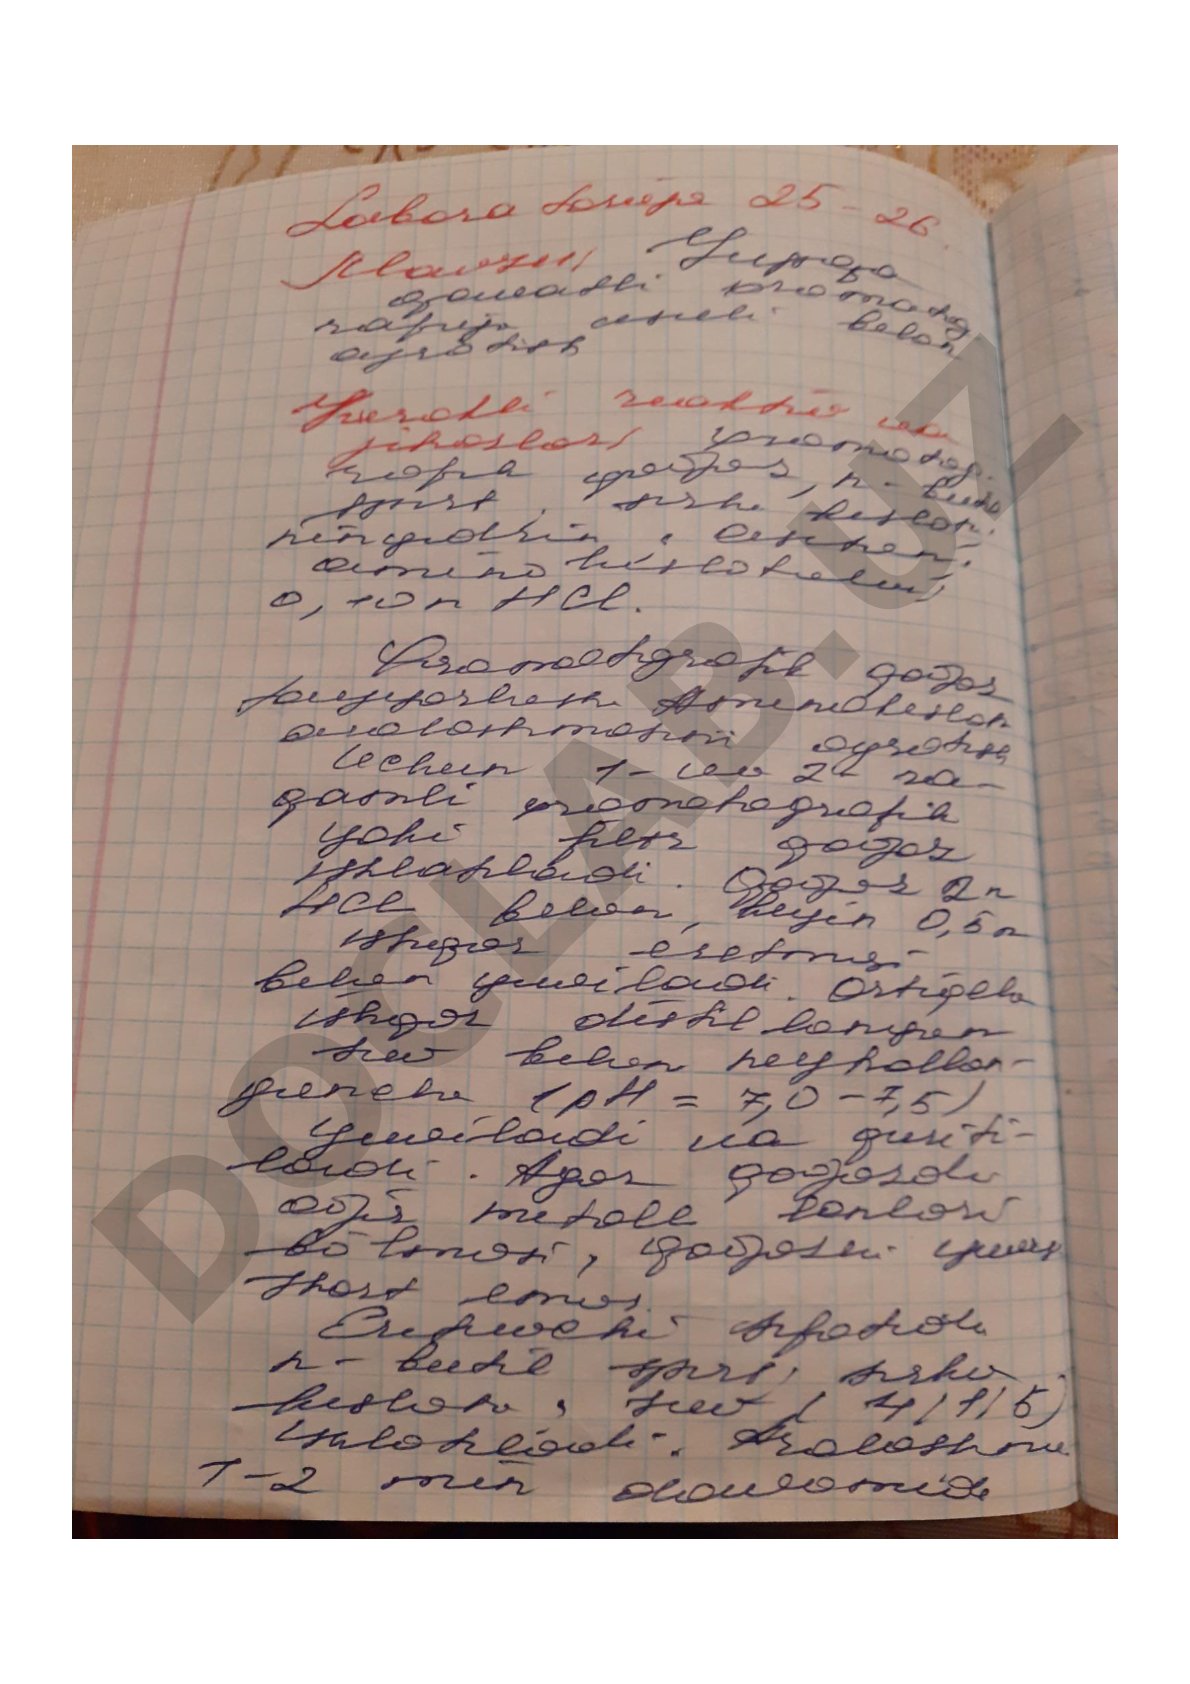 Laboratoriya 25-26.
Mavzu: Yupqa
qavatli xromatog
rafiya usuli bilan
ajratish
Kerakli reaktiv va
jihozlari xromatog-
rafik qog'oz, n-butil
spirt, sirka kislota,
ningidrin,
aminokislotalar,
0,10 n HCl.
Xromatografik qog'oz
tayyorlash. Aminokislota
aralashmasini ajratish
uchun 1- va 2- ra-
qamli xromatografik
yoki filtr qog'oz
ishlatiladi. Qog'oz 2n
HCl bilan, keyin 0,5 n
ishqor eritmasi
bilan yuviladi. Ortiqcha
ishqor distillangan
suv bilan neytrallan-
guncha (pH = 7,0-7,5)
yuviladi va quriti-
ladi. Agar qog'ozda
og'ir metall ionlari
bo'lmasa, qog'ozni yuvish
shart emas.
Erituvchi sifatida
n-butil spirt, sirka
kislota, suv (4/1/5)
ishlatiladi. Aralashma
1-2 min davomida
DOCLAB.UZ